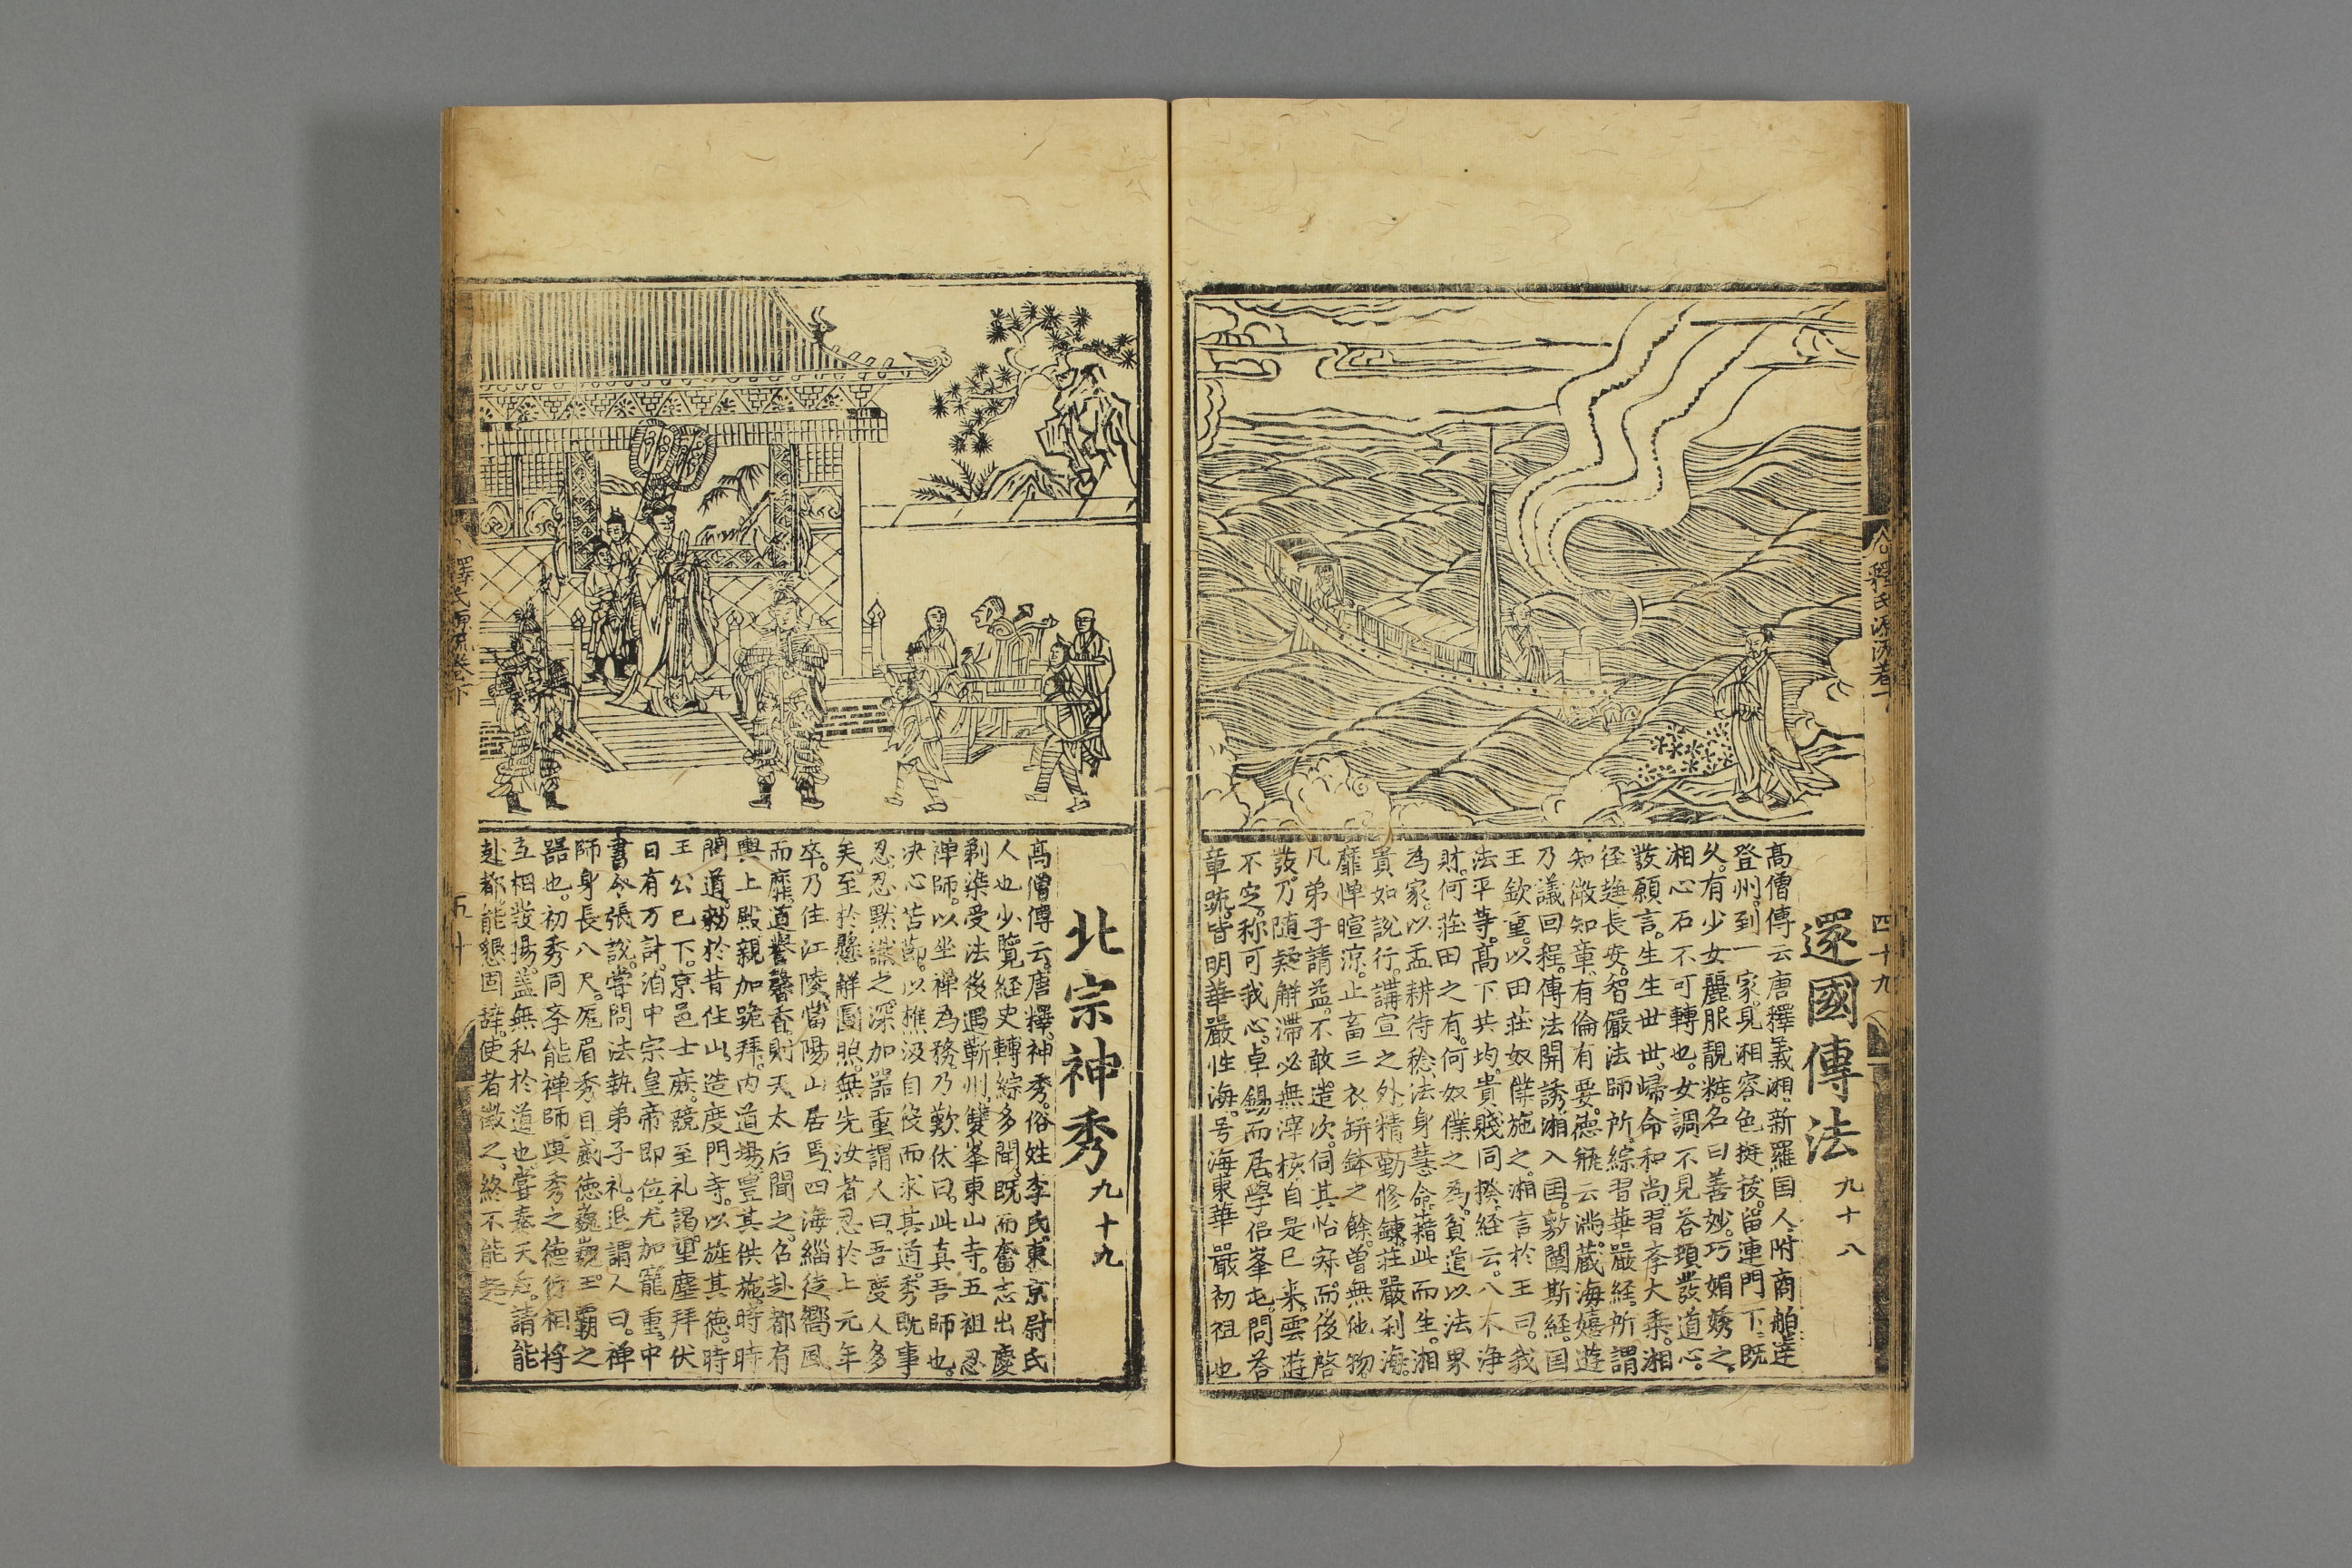 釋氏源流卷下
四十九
還國傳法 九十八
高僧傳云唐釋義湘。新羅国人。附商舶達
登州。到一家。見湘容色挺㧞。留連門下。既
久。有少女麗服靚粧。名曰善妙。巧媚誘之。
湘心石不可轉也。女調不見荅頓發道心。
發願言。生生世世。歸命和尚。習斈大乗。湘
径趍長安。智儼法師所。綜習華嚴経。所謂
知微知章。有倫有要。徳瓶云滿。蔵海嬉遊
乃議回程。傳法開誘。湘入国。敷闡斯経。国
王欽重。以田荘奴僕施之。湘言於王曰。我
法平等。高下共均。貴賤同揆。経云。八不浄
財。何荘田之有。何奴僕之為。貧道以法界
為家。以盂耕待稔。法身慧命。藉此而生。湘
貴如說行。講宣之外。精勤修鍊。荘嚴刹海。
靡憚暄涼。止畜三衣缾鉢之餘。曽無他物。
凡弟子請益。不敢遽次。伺其怡寂。而後啓
發。乃随疑解滞。必無滓核。自是已来。雲遊
不定。称可我心。卓錫而居。學侣峯屯。問荅
章䟽。皆明華嚴性海。号海東華嚴初祖也
北宗神秀 九十九
高僧傳云。唐釋神秀。俗姓李氏。東京尉氏
人也。少覽経史。轉綜多聞。既而奮志出塵
剃染受法。後遇蘄州雙峯東山寺。五祖忍
禅師。以坐禅為務。乃歎伏曰。此真吾師也。
决心苦節。以樵汲自役而求其道。秀既事
忍。忍黙識之。深加器重。謂人曰。吾度人多
矣。至於懸解圓照。無先汝者。忍於上元年
卒。乃往江陵當陽山居焉。四海緇徒。嚮風
而靡。道譽馨香。則天太后聞之。召赴都。肩
輿上殿。親加跪拜。内道場。豊其供施。時時
問道。勅於昔住山。造度門寺。以旌其徳。時
王公已下。京邑士庶。競至礼謁。望塵拜伏
日有万計。洎中宗皇帝即位。尤加寵重。中
書令張說。嘗問法執弟子礼。退謂人曰。禅
師身長八尺。厖眉秀目。威徳巍巍。王霸之
器也。初秀同斈能禅師。與秀之徳行相将
互相發揚。盖無私於道也。嘗奏天后。請能
赴都。能懇固辞。使者徵之。終不能起
釋氏源流卷下
五十